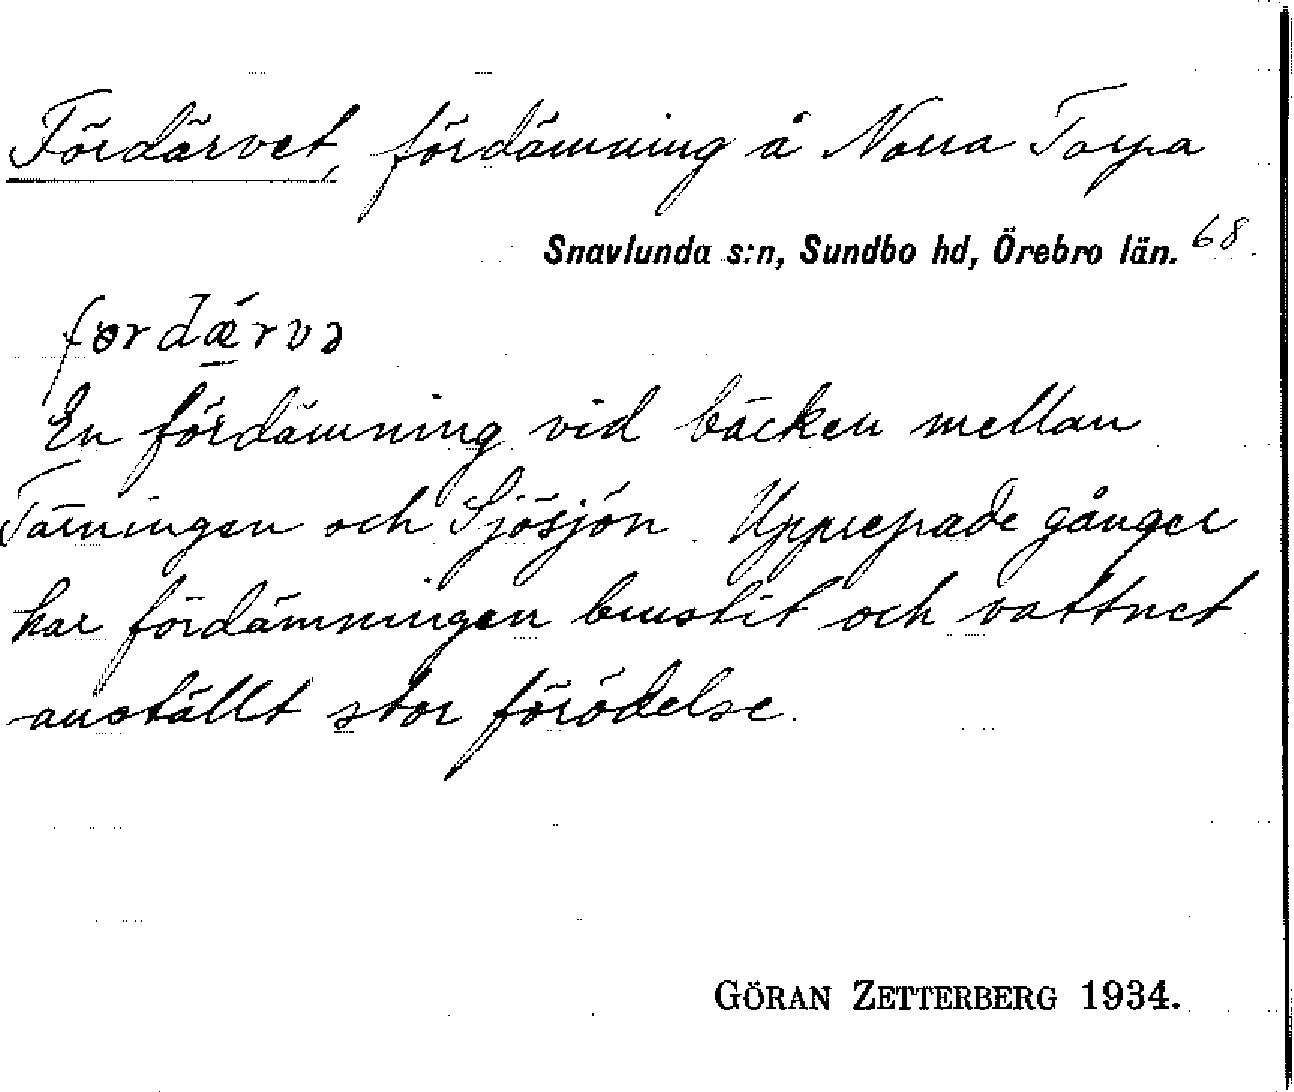 Fördärvet, fördämning å Norra Torpa
Snavlunda s:n, Sundbo hd, Örebro län. 68
førdǽrvə
En fördämning vid bäcken mellan
Tärningen och Sjösjön. Upprepade gånger
har fördämningen brustit och vattnet
anställt stor förödelse.
GÖRAN ZETTERBERG 1934.